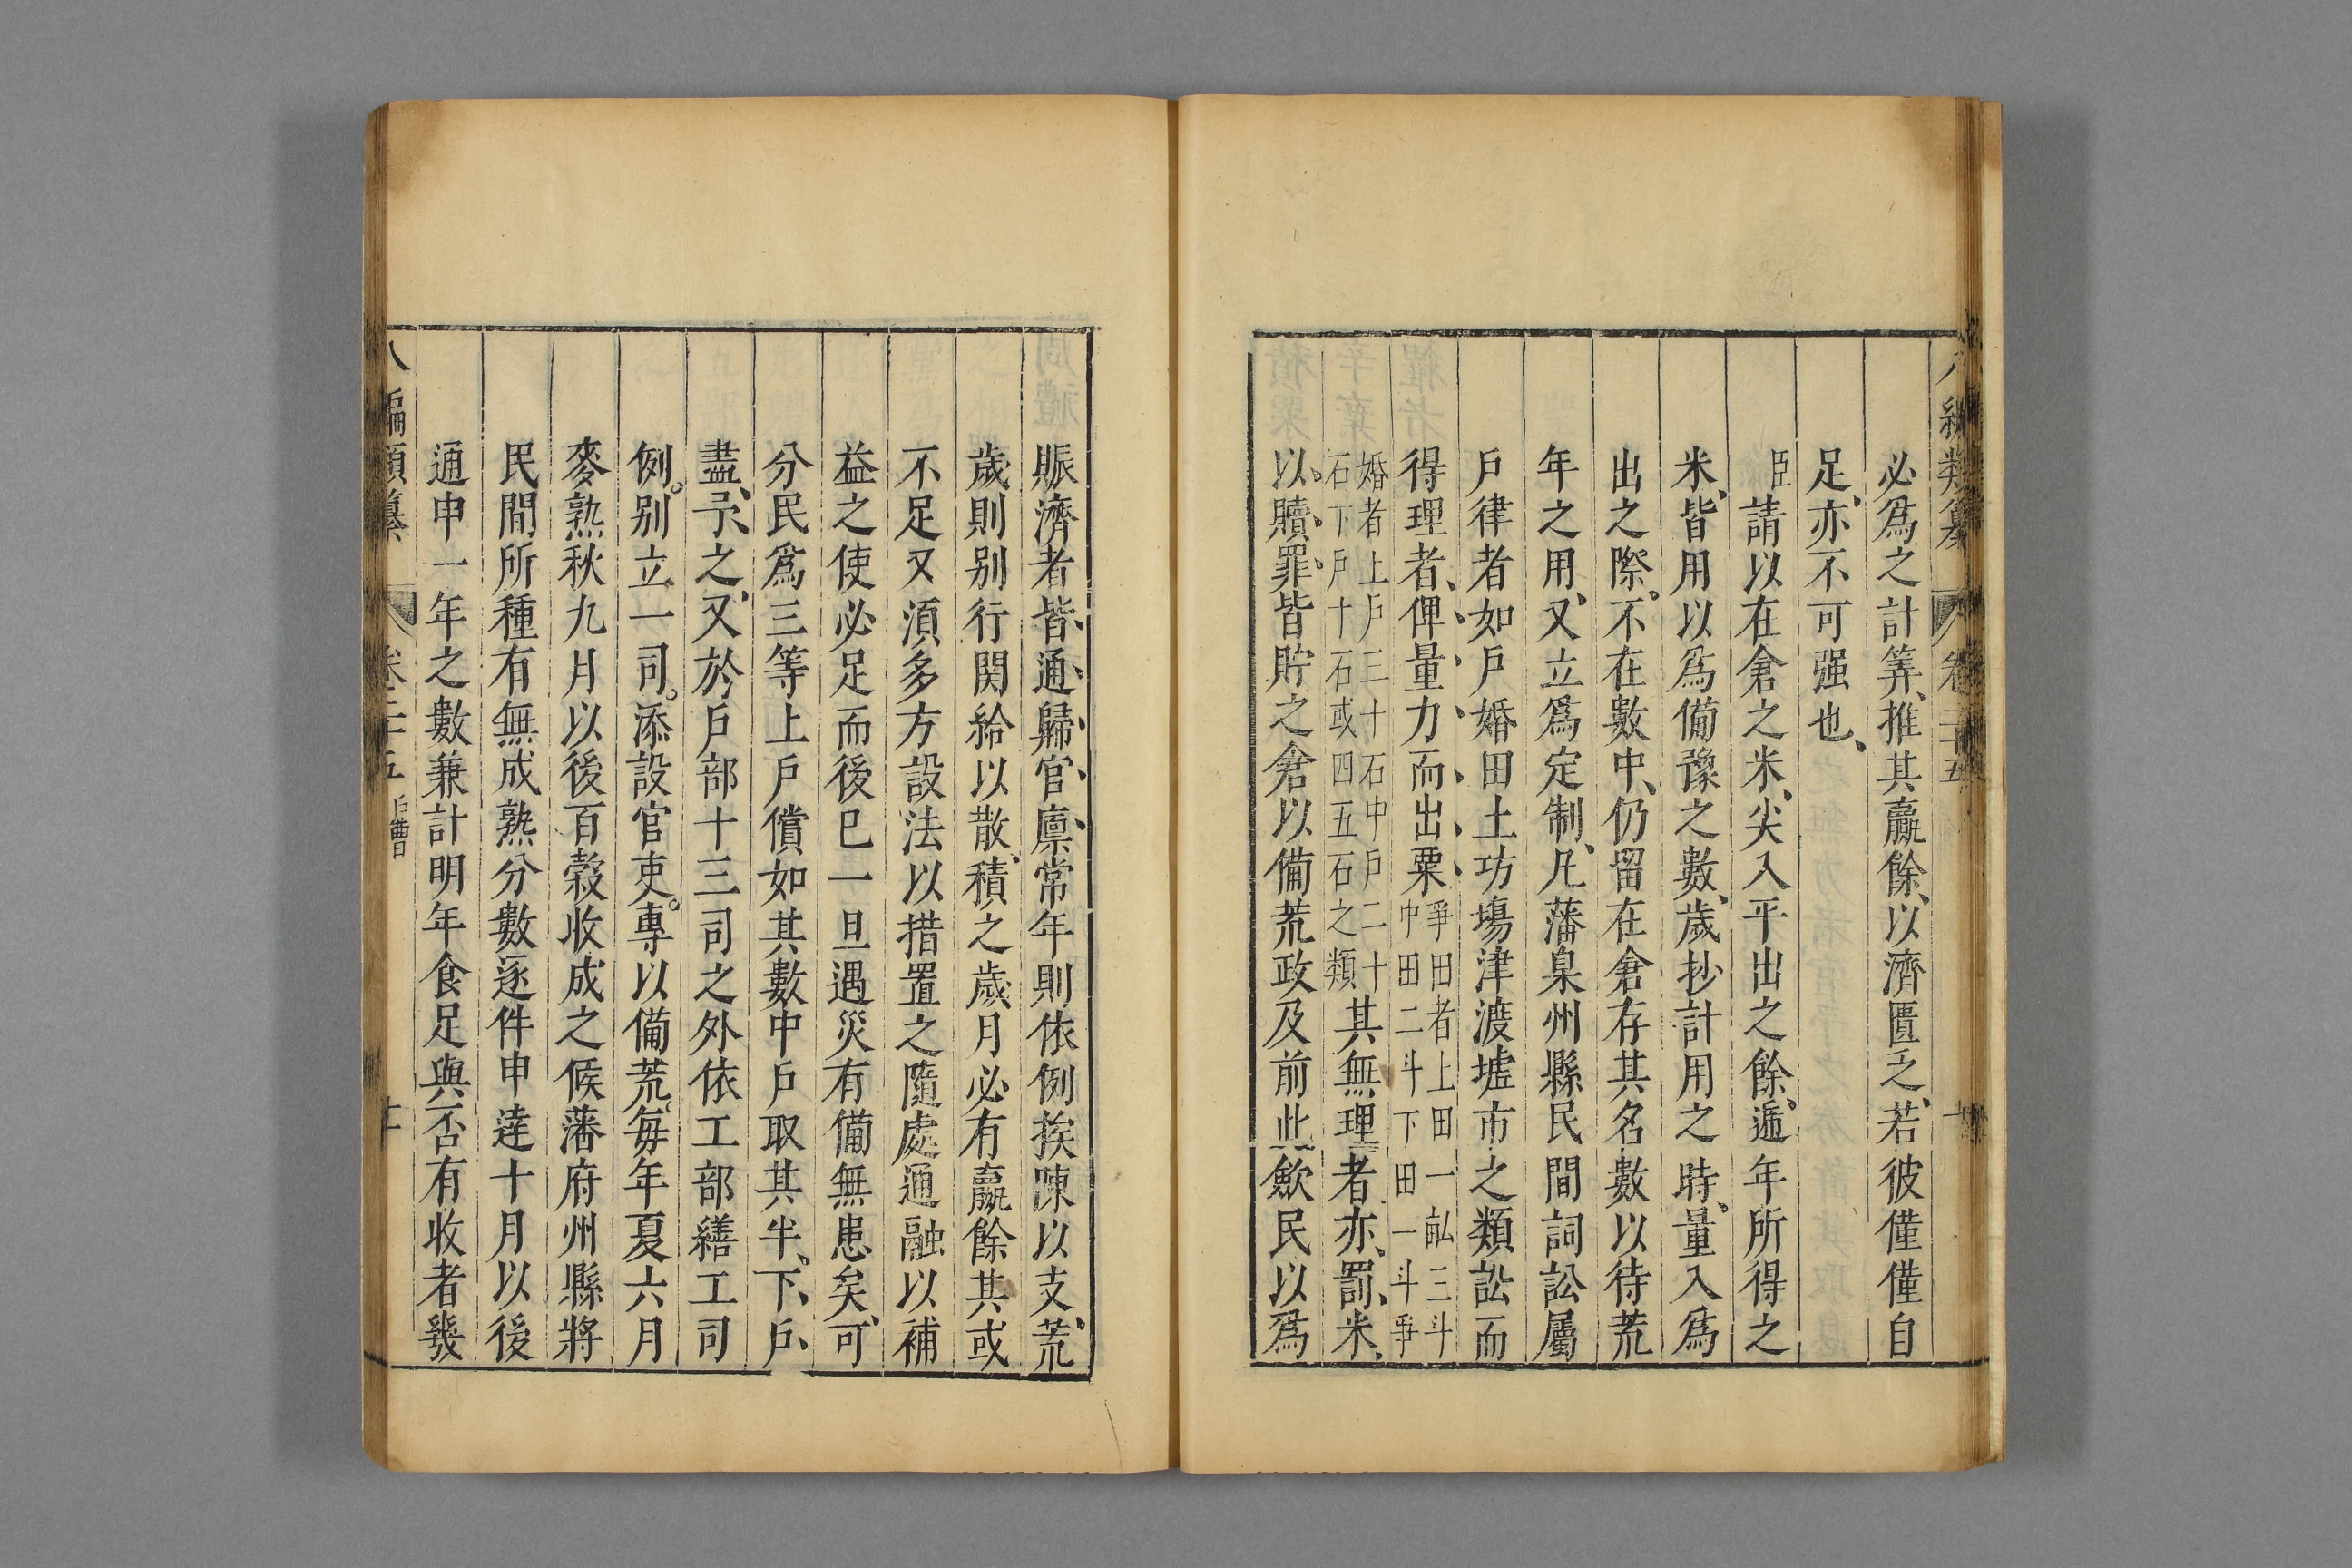 必爲之計筭、推其贏餘、以濟匱乏、若彼僅僅自
足、亦不可强也、
臣請以在倉之米、尖入平出之餘、逓年所得之
米、皆用以爲備豫之數、歲抄計用之時、量入爲
出之際。不在數中、仍留在倉存其名數以待荒
年之用、又立爲定制、凡藩臬州縣民間詞訟屬
戶律者如戶婚田土坊塲津渡墟市之類訟而
得理者、俾、量、力、而、出、粟、爭田者上田一畝三斗
中田二斗下田一斗爭
婚者上戶三十石中戶二十
石下戶十石或四五石之類其無理者亦、罰、米、
以。贖、罪、皆貯之倉以備荒政及前此歛民以爲
八編類纂 卷二十五 十
賑濟者皆、通、歸、官、廪、常年則依例挨陳以支、荒
歲則别行関給以散、積之歲月必有贏餘其或
不足又須多方設法以措置之隨處通融以補
益之使必足而後已一旦遇災有備無患矣、可
分民爲三等上戶償如其數中戶取其半、下、戶、
盡、予、之、又於戶部十三司之外依工部繕工司
例。别立一司。添設官吏。專以備荒。每年夏六月
麥熟秋九月以後百穀收成之候藩府州縣將
民間所種有無成熟分數逐件申達十月以後
通申一年之數兼計明年食足與否有收者幾
八編類纂 卷二十五 戶曹 十一